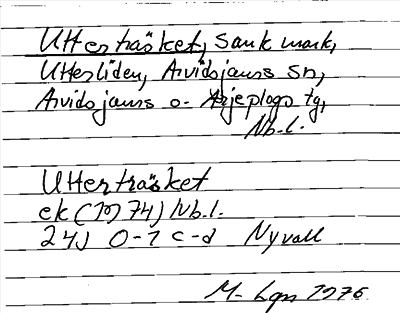 Utterträsket, sank mark,
Utterliden, Arvidsjaurs sn,
Arvidsjaurs o. Arjeplogs tg,
Nb.l.
Utterträsket
ek (1974) Nb.l.
24J 0-1 c-d Nyvall
M. Lgn 1976